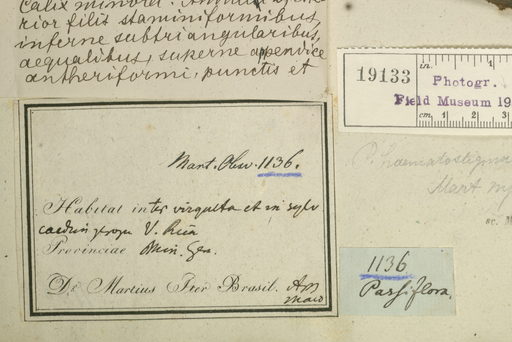 calix minores. Annulus
rior filis staminiformibus,
inferne subtriangularibus,
aequalibus, superne appendice
antheriformi, punctis et
Mart. Obsv. 1136.
Habitat inter virgulta et in sylv
V. Rica
Provinciae Min. Gen.
Dr Martius Iter Brasil.
in.
19133
Photogr.
Field Museum 19
cm. 1 2 3
P. haematostigma
Mart
1136
Passiflora.